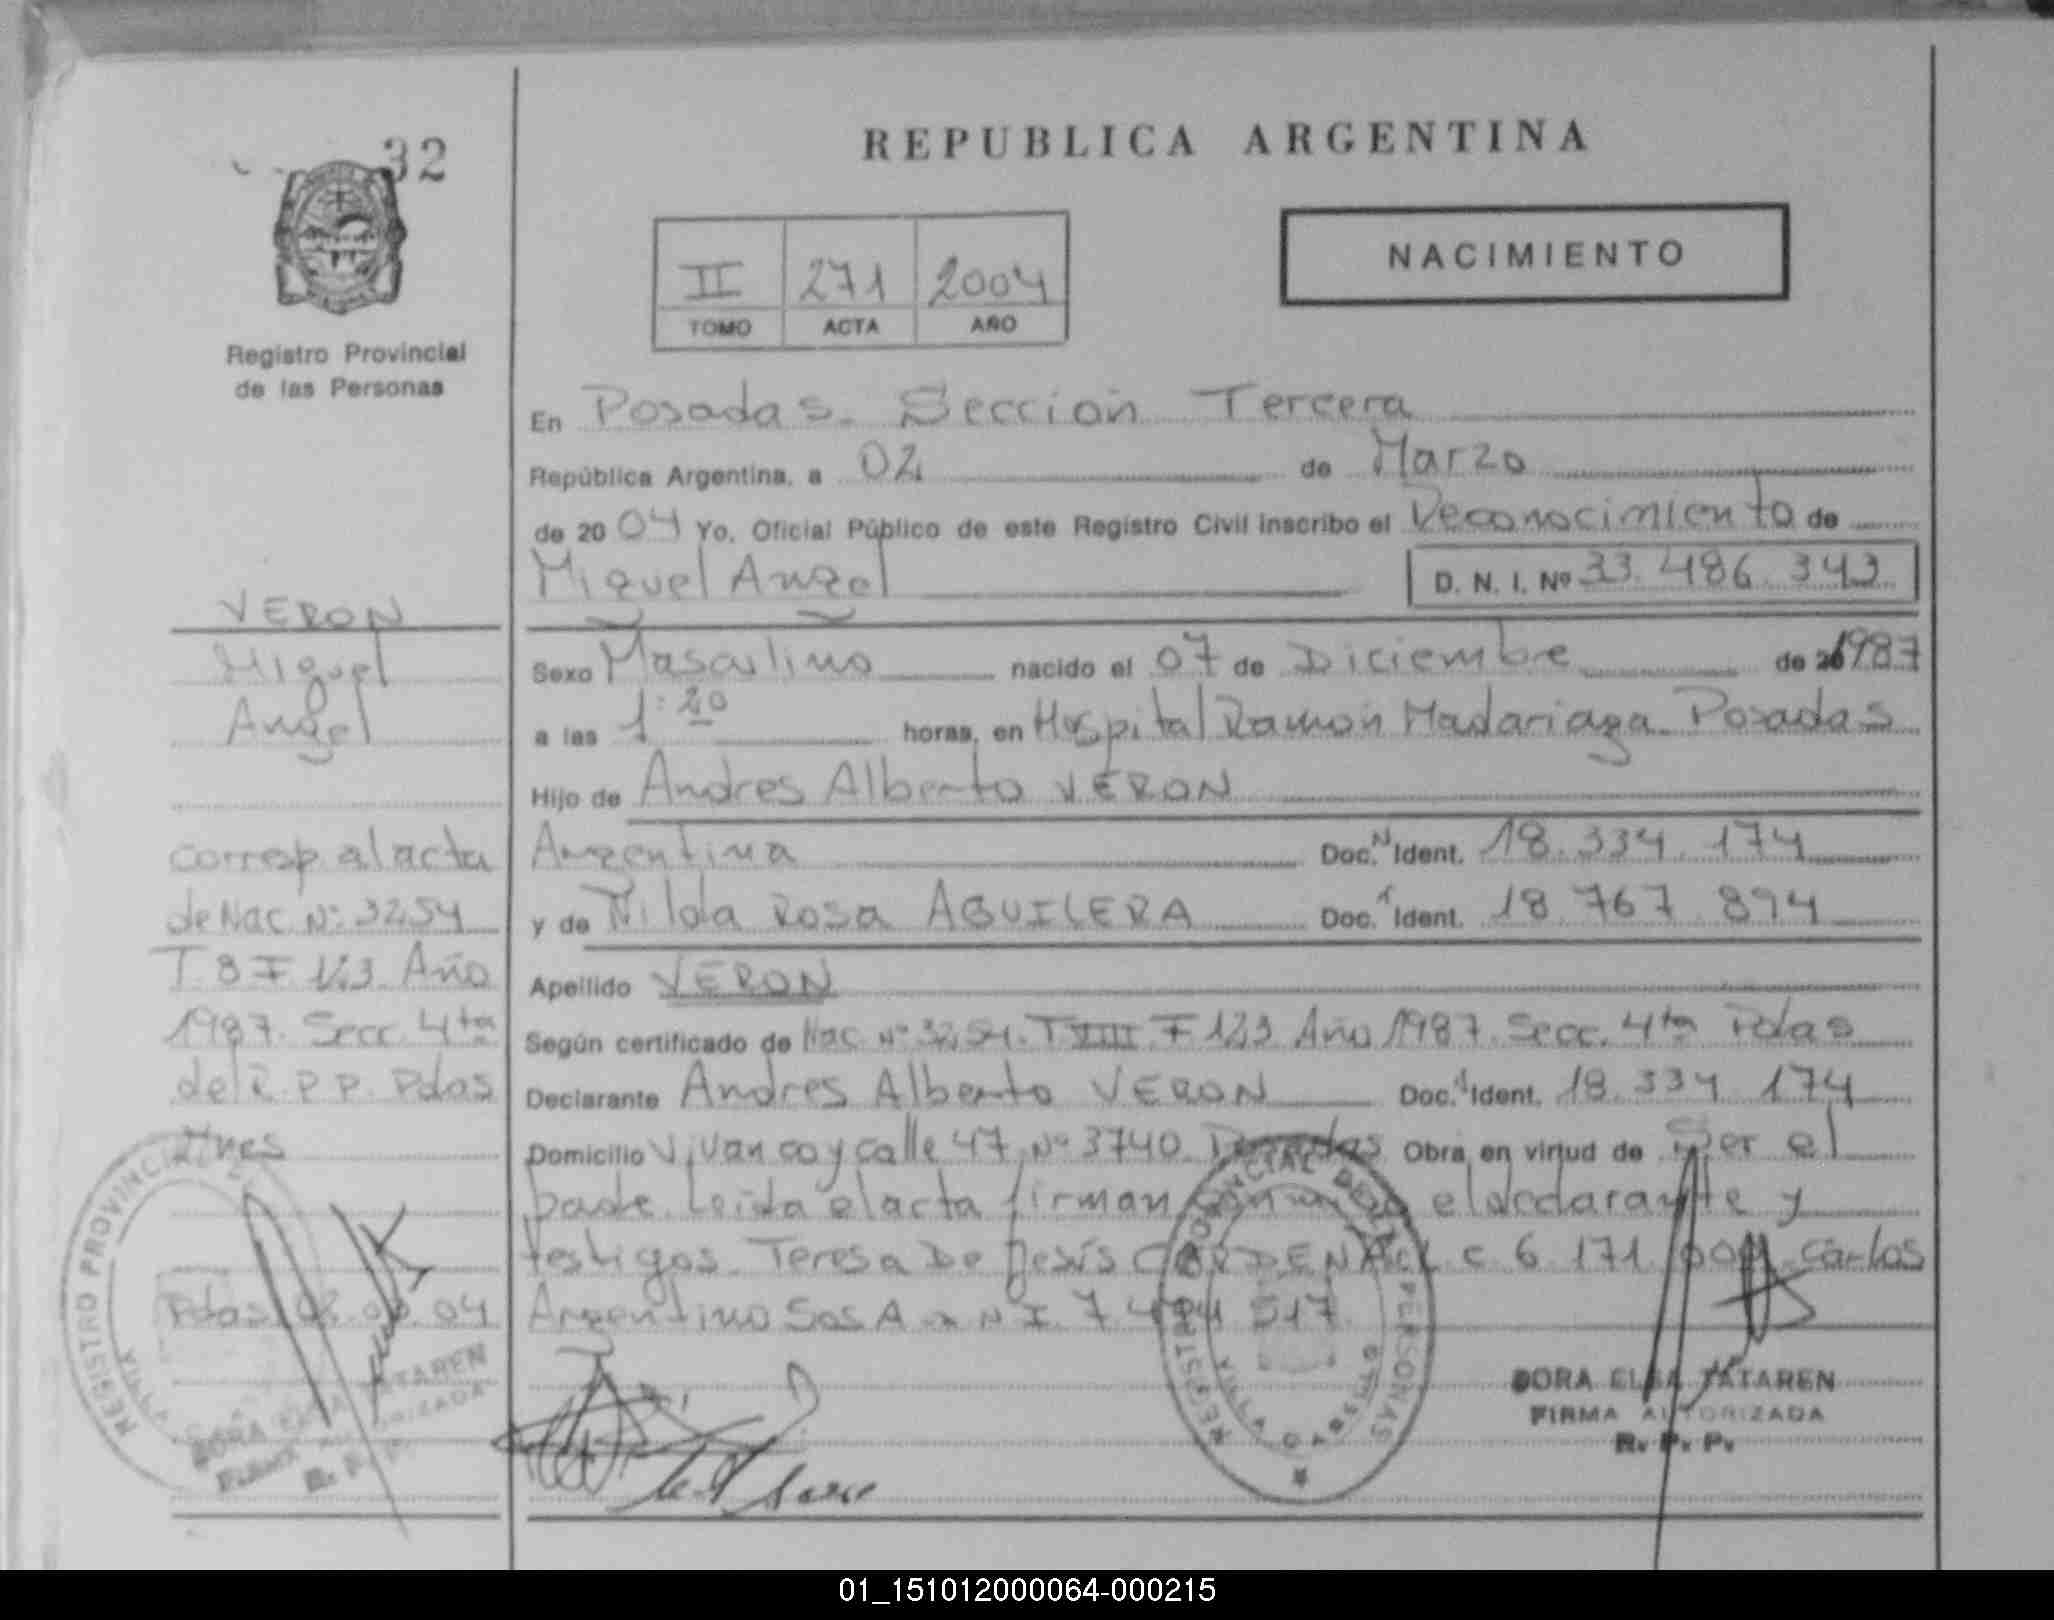 32
REPUBLICA ARGENTINA
NACIMIENTO
II 271 2004
TOMO ACTA AÑO
Registro Provincial
de las Personas
En Posadas. Sección Tercera
República Argentina, a 02 de Marzo
de 2004 Yo, Oficial Público de este Registro Civil inscribo el Reconocimiento de
Miguel Angel D. N. I. Nº 33.486.343
VERON
Miguel
Angel
Sexo Masculino nacido el 07 de Diciembre de 1987
a las 1:20 horas, en Hospital Ramón Madariaga Posadas
Hijo de Andres Alberto VERON
Argentina Doc. N Ident. 18.334.174
y de Nilda Rosa AGUILERA Doc. Ident. 18.767.894
Apellido VERON
Según certificado de Nac. Nº 3254. T VIII F 123 Año 1987. Secc. 4ta Pdas
Declarante Andres Alberto VERON Doc. Ident. 18.334.174
Domicilio Vivanco y calle 47 Nº 3740 Posadas Obra en virtud de Ser el
padre. Leída el acta firman el declarante y
testigos. Teresa De Jesús CARDENA L.C 6.171. Carlos
Argentino SosA D N I. 7.494 517.
corresp al acta
de Nac. Nº: 3254
T. 8 F 123 Año
1987. Secc. 4ta
del R. P. P. Pdas
Mnes
Pdas 04
REGISTRO PROVINCIAL
VILLA
DORA ELSA TATAREN
FIRMA AUTORIZADA
R. P.
REGISTRO PROVINCIAL DE LAS PERSONAS
VILLA CABELLO
DORA ELSA TATAREN
FIRMA AUTORIZADA
R. P. P.
01_151012000064-000215